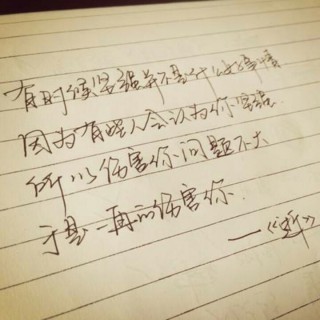 有时候坚强并不是什么好事情
因为有些人会认为你坚强
所以伤害你问题不大
于是一再的伤害你
—《》